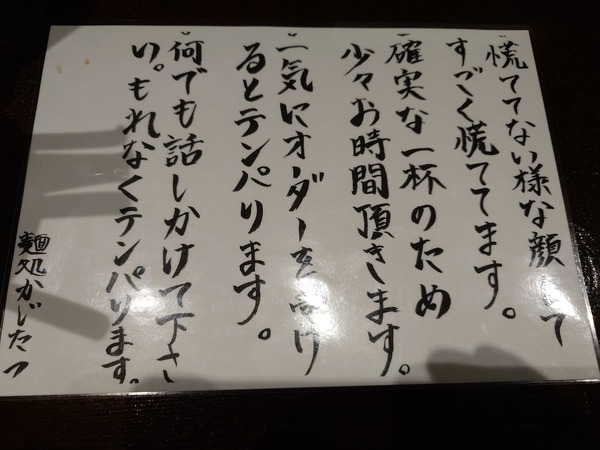 ・慌ててない様な顔して
すごく慌ててます。
・確実な一杯のため
少々お時間頂きします。
・一気にオーダーを受け
るとテンパります。
・何でも話しかけて下さ
い。もれなくテンパります。
麺処かじたつ